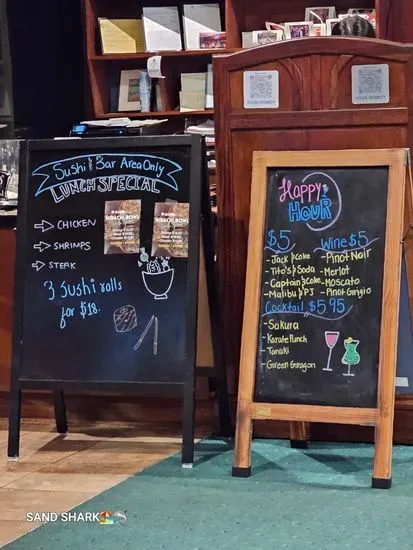 Sushi & Bar Area Only
LUNCH SPECIAL
CHICKEN
SHRIMPS
STEAK
HIBACHI BOWL
HIBACHI BOWL
3 Sushi rolls
for $18.
HAPPY
HOUR
$5
- Jack & Coke
- Tito's & Soda
- Captain & Coke
- Malibu & PJ
Wine $5
- Pinot Noir
- Merlot
- Moscato
- Pinot Girigio
Cocktail $5.95
- Sakura
- Karate Punch
- Tanuki
- Green Dragon
SAND SHARK